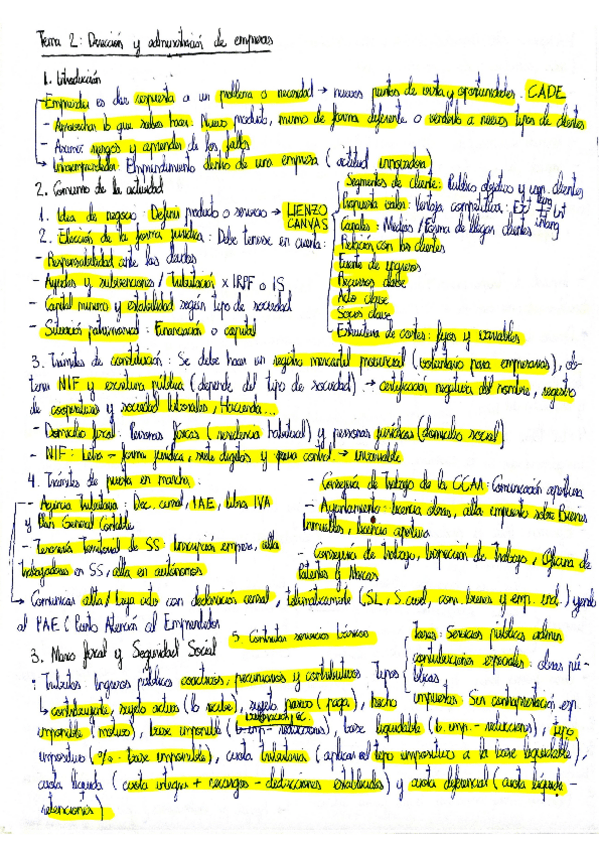 Tema 2: Dirección y administración de empresas
1. Introducción
Emprender es dar respuesta a un problema o necesidad → nuevos puntos de vista y oportunidades. CADE
- Aprovechar lo que sabes hacer. Nuevo producto, mismo de forma diferente o venderlo a nuevos tipos de clientes
- Asumir riesgos y aprender de los fallos
→ Intraemprendedor: Emprendimiento dentro de una empresa (actitud innovadora)
2. Comienzo de la actividad
1. Idea de negocio: Definir producto o servicio → LIENZO CANVAS
Segmentos de cliente: Público objetivo y clientes
Propuesta valor: Ventaja competitiva
Canales: Medios / Forma de llegar clientes
Relación con los clientes
Fuente de ingresos
Recursos clave
Actv clave
Socios clave
Estructura de costes: fijos y variables
2. Elección de la forma jurídica: Debe tenerse en cuenta:
- Responsabilidad ante las deudas
- Ayudas y subvenciones / tributación x IRPF o IS
- Capital mínimo y estabilidad según tipo de sociedad
- Situación patrimonial: Financiación o capital
3. Trámites de constitución: Se debe hacer un registro mercantil provincial (voluntario para empresarios), ob-
tener NIF y escritura pública (depende del tipo de sociedad). → certificación negativa del nombre, registro
de cooperativas y sociedad laborales, Hacienda...
- Domicilio fiscal: Personas físicas (residencia habitual) y personas jurídicas (domicilio social)
- NIF: Letra = forma jurídica, siete dígitos y control → invariable
4. Trámites de puesta en marcha:
- Agencia Tributaria: Dec. censal, IAE, libros IVA
y Plan General Contable
- Tesorería Territorial de SS: Inscripción empresa, alta
trabajadores en SS, alta en autónomos
- Consejería de Trabajo de la CCAA: Comunicación apertura
- Ayuntamiento: licencia obras, alta impuesto sobre Bienes
Inmuebles, licencia apertura
- Consejería de Trabajo, Inspección de Trabajo, Oficina de
Patentes y Marcas
→ Comunicar alta/baja actv con declaración censal, telemáticamente (SL, S.cool, com. bienes y emp. ind.) yendo
al PAE (Punto Atención al Emprendedor
5. Contratar servicios básicos
3. Marco fiscal y Seguridad Social
: Tributos: Ingresos públicos coactivos, pecuniarios y contributivos Tipos
Tasas: Servicios públicos admin
contribuciones especiales: obras pú-
blicas
impuestos: Sin contraprestación esp.
↳ contribuyente, sujeto activo (lo recibe), sujeto pasivo (paga), hecho
imponible (motivo), base imponible, base liquidable (b. imp. - reducciones), tipo
impositivo (% base imponible), cuota tributaria (aplicar el tipo impositivo a la base liquidable),
cuota líquida (cuota íntegra + recargos - deducciones establecidas) y cuota diferencial (cuota líquida -
retenciones)